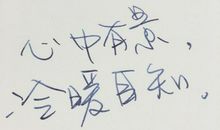 心中有景,
冷暖自知。